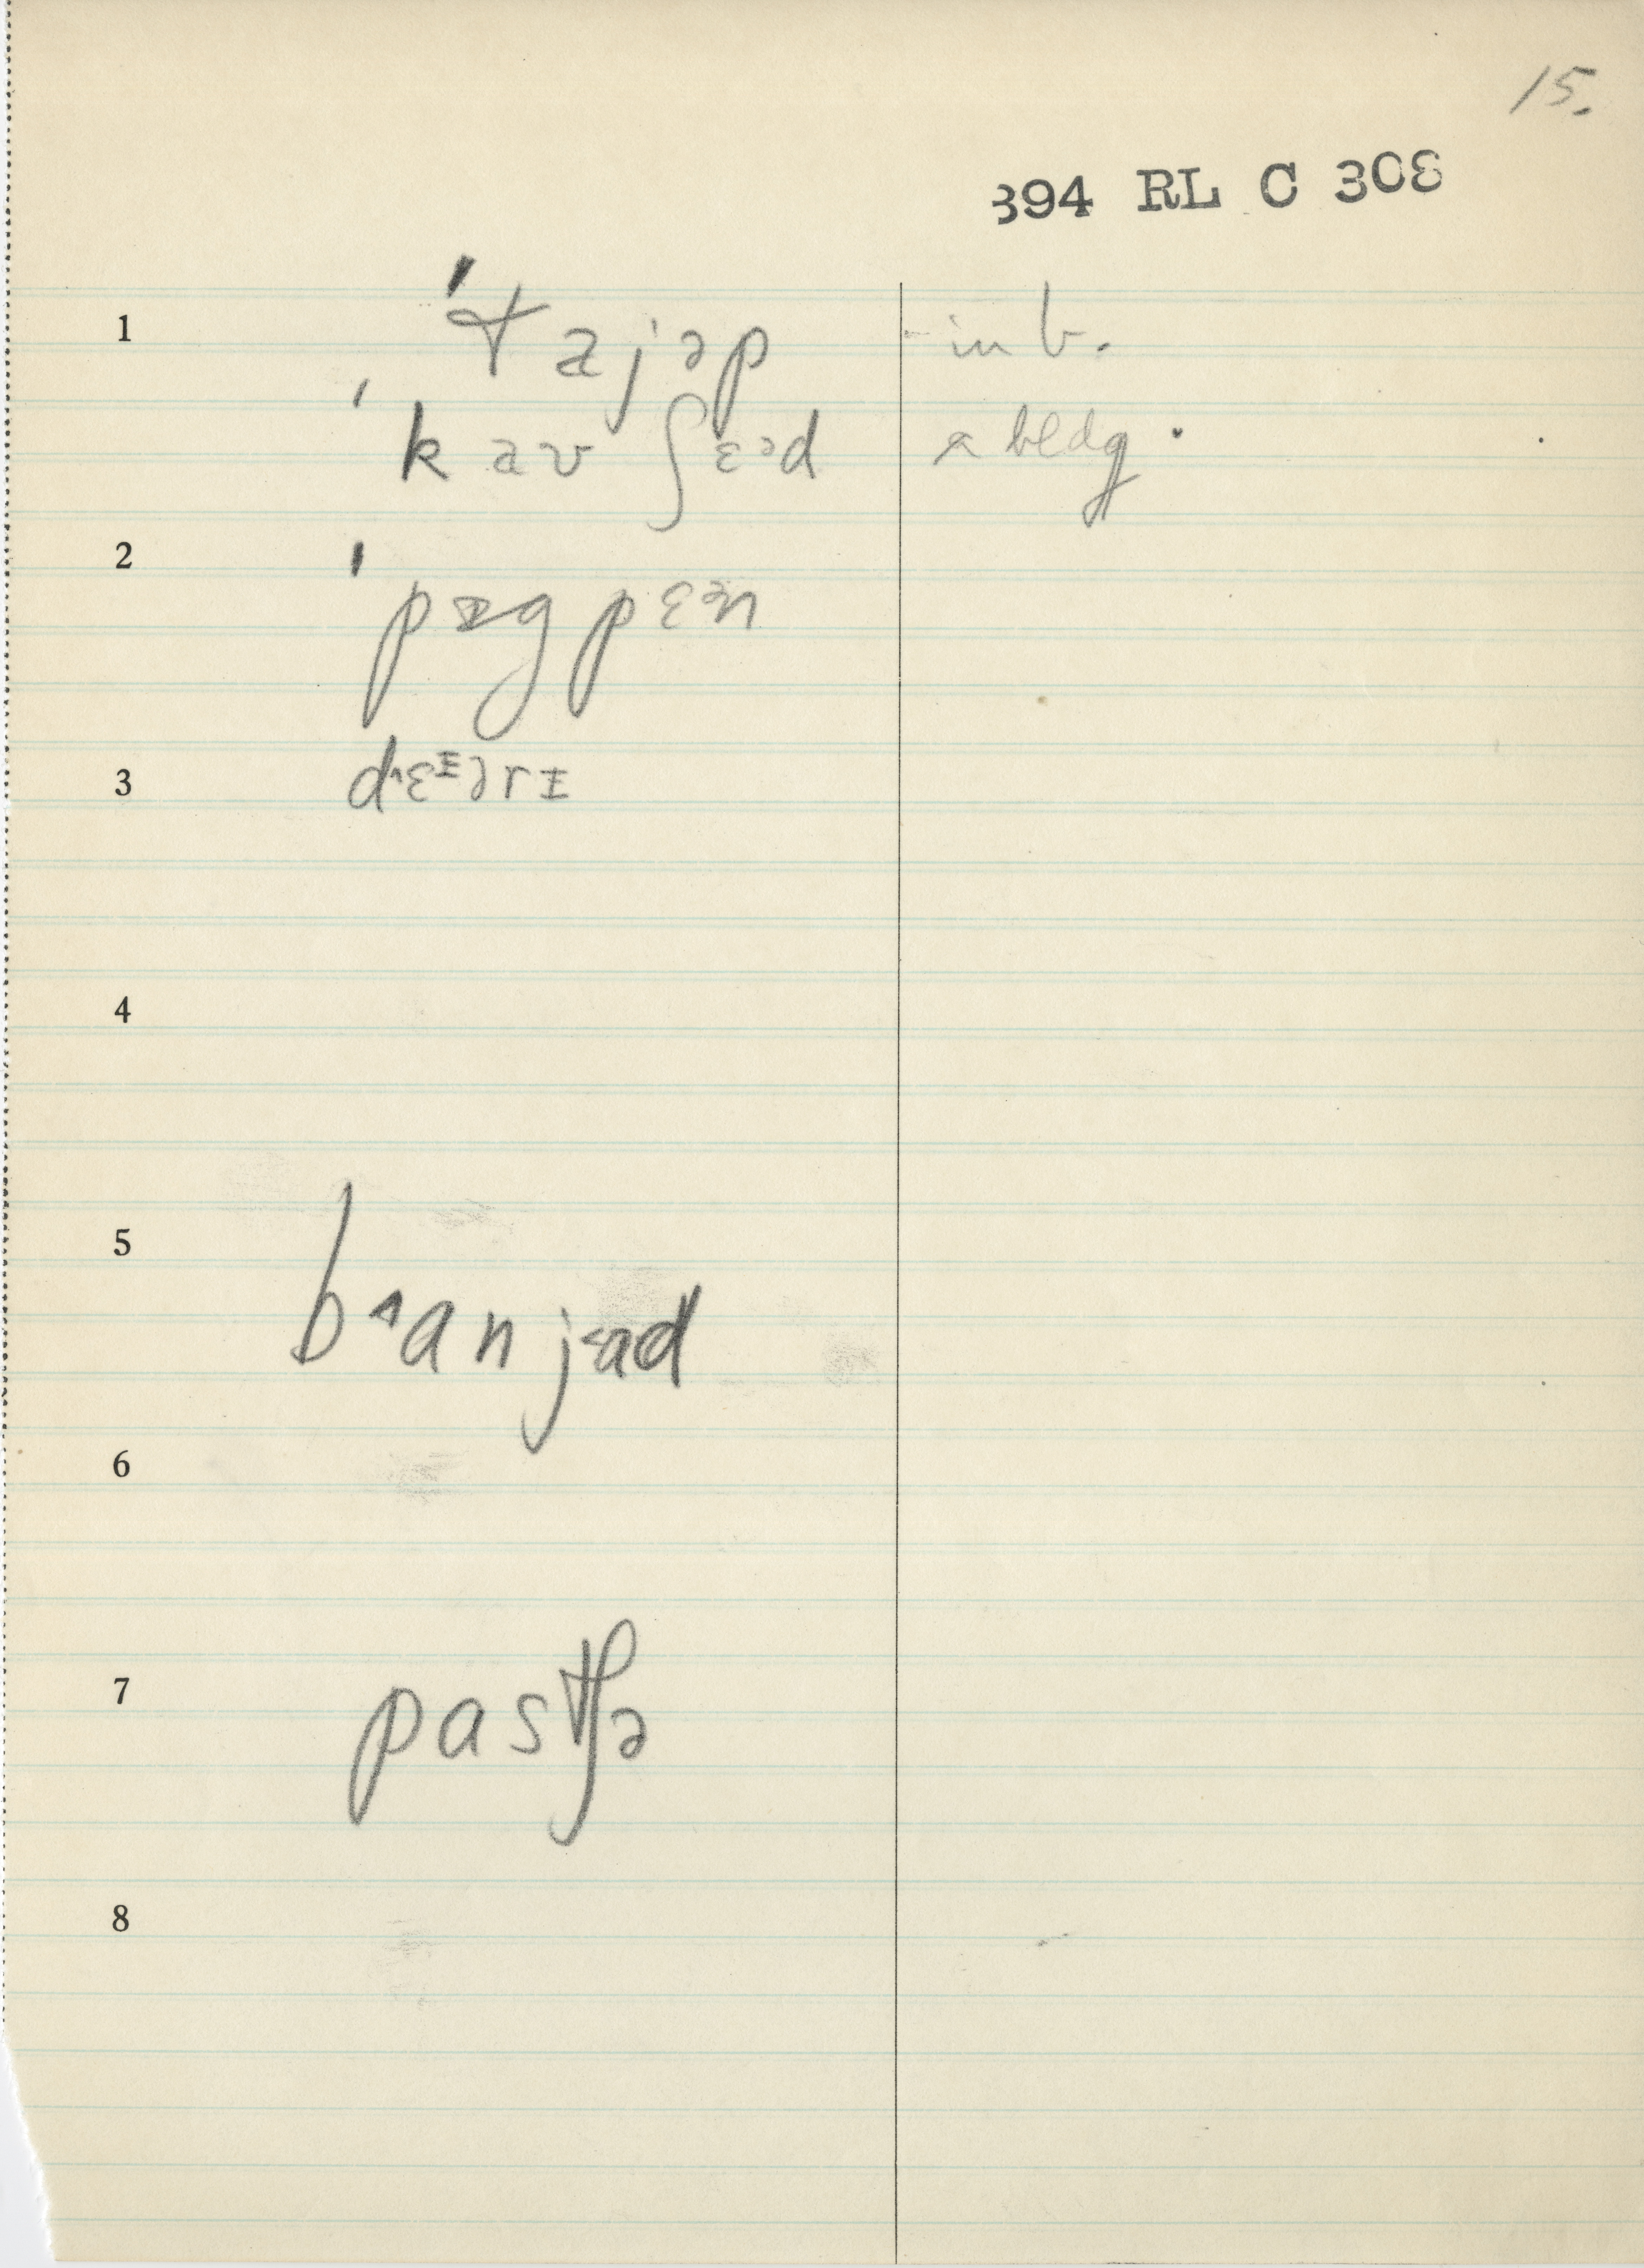 15.
394 RL C 308
1 ˈtajəp in b.
ˈkavʃɛəd a bldg.
2 ˈpɪgpɛən
3 dᶺɛᵻərᵻ
4
5 bᶺanjɛad
6
7 pastʃə
8